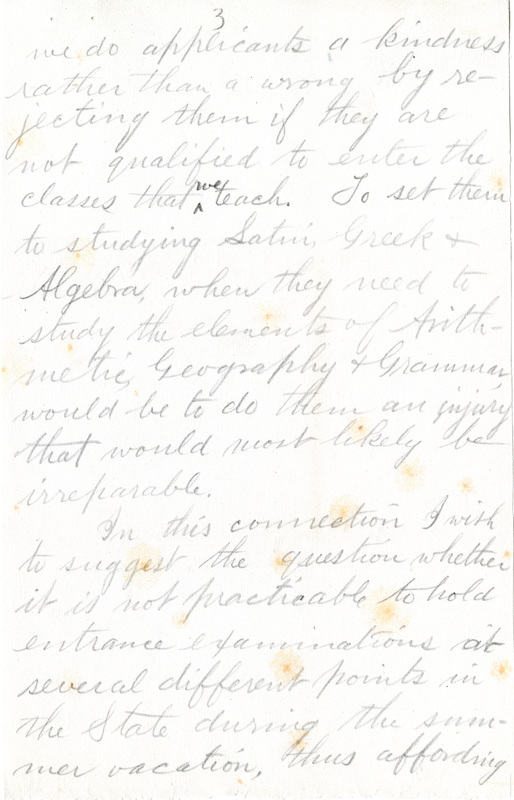 3
we do applicants a kindness
rather than a wrong by re-
jecting them if they are
not qualified to enter the
classes that we teach. To set them
to studying Latin, Greek &
Algebra, when they need to
study the elements of Arith-
metic, Geography & Grammar
would be to do them an injury
that would most likely be
irreparable.
In this connection I wish
to suggest the question whether
it is not practicable to hold
entrance examinations at
several different points in
the State during the sum-
mer vacation, thus affording